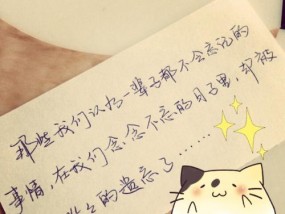 那些我们认为一辈子都不会忘记的
事情，在我们念念不忘的日子里，却被
的遗忘了……